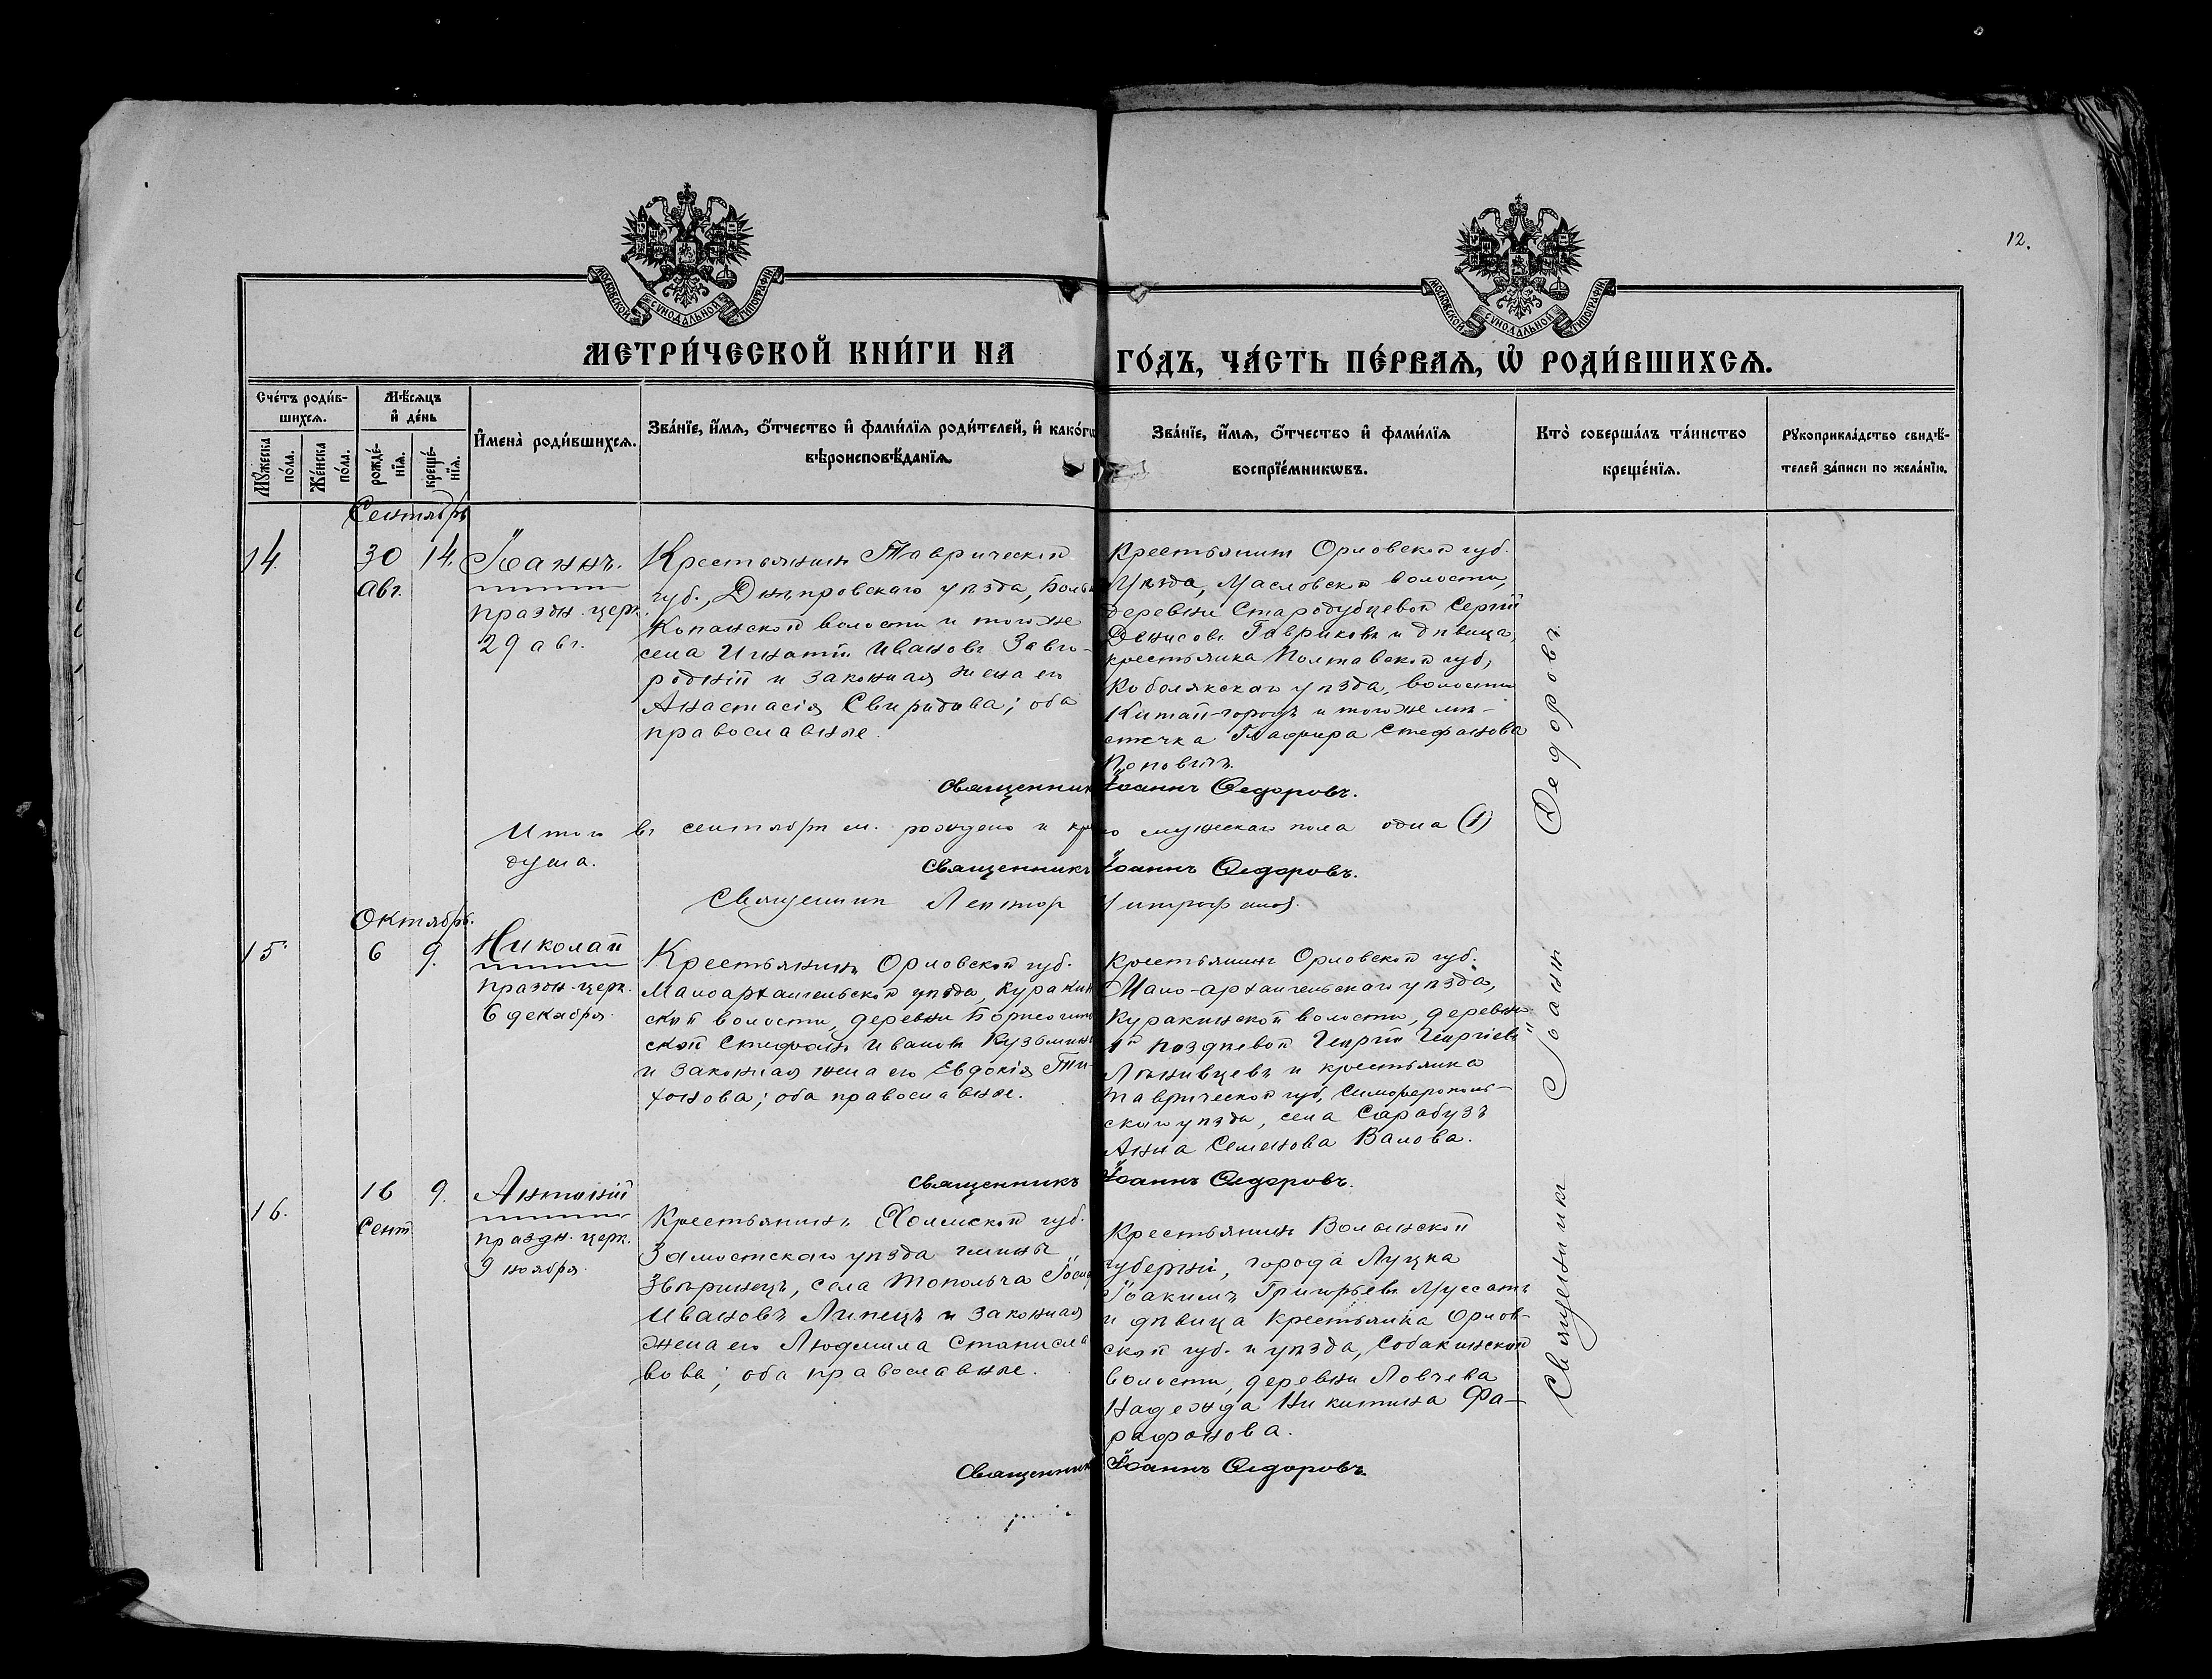 12.
МОСКОВСКОЙ СУНОДАЛЬНОЙ ТИПОГРАФІИ
МОСКОВСКОЙ СУНОДАЛЬНОЙ ТИПОГРАФІИ
МЕТРИ́ЧЕСКОЙ КНИ́ГИ НА ГО́ДЪ, ЧА́СТЬ ПЕ́РВАѦ, Ѡ҆ РОДИ́ВШИХСѦ.
Счетъ роди́в-
шихсѧ.
Мꙋжеска
по́ла.
Же́нска
по́ла.
Мѣ́сѧцъ
и҆ де́нь
рожде́-
нїѧ.
креще́-
нїѧ.
И҆мена̀ роди́вшихсѧ.
Зва́нїе, и҆́мѧ, ѻ҆́тчество и҆ фами́лїѧ роди́телей, и҆ како́гѡ
вѣроисповѣ́данїѧ.
Зва́нїе, и҆́мѧ, ѻ҆́тчество и҆ фами́лїѧ
воспрїе́мникѡвъ.
Кто̀ соверша́лъ та́инство
креще́нїѧ.
Рꙋкоприкла́дство свидѣ́-
телей за́писи по жела́нїю.
Сентябрь
14.
30
Авг.
14.
Іоаннъ.
праздн. церк.
29 авг.
Крестьянинъ Таврической
губ., Днѣпровскаго уѣзда, Больше
Копанской волости и того же
села Игнатій Ивановъ Заво-
родній и законная жена его
Анастасія Свиридова; оба
православные.
Крестьянинъ Орловской губ.
Уѣзда, Масловской волости,
деревни Стародубцевой Сергій
Денисовъ Гавриковъ и дѣвица,
крестьянка Полтавской губ,
Кобелякскаго уѣзда, волости
Китай-городъ и того же мѣ-
стечка Глафира Стефанова
Поповичъ.
Священникъ Іоаннъ Ѳедоровъ.
Итого въ сентябрѣ м. рождено и мужескаго пола одна (1)
душа.
Священникъ Іоаннъ Ѳедоровъ.
Священникъ
Октябрь.
15.
6
9.
Николай
праздн. церк.
6 декабря.
Крестьянинъ Орловской губ.
Малоархангельской уѣзда, Куракин
ской волости, деревни
ской Стефанъ Ивановъ Кузьминъ
и законная жена его Евдокія Ти-
хонова; оба православные.
Крестьянинъ Орловской губ.
Мало-архангельскаго уѣзда,
Куракинской волости, деревни
1й Поздневой Георгій Георгіевъ
Лѣнивцевъ и крестьянка
Таврической губ, Симферополь-
скаго уѣзда, села Сарабузъ
Анна Семенова Валова.
Священникъ Іоаннъ Ѳедоровъ.
16.
16
Сент.
9.
Антоній
праздн. церк.
9 ноября.
Крестьянинъ Холмской губ.
Замостскаго уѣзда гмины
Звѣринецъ, села Топольча Іосифъ
Ивановъ Липецъ и законная
жена его Людмила Станисла
вова; оба православные.
Крестьянинъ Волынской
губерніи, города Луцка
Іоакимъ Григорьевъ
и дѣвица крестьянка Орлов-
ской губ. и уѣзда, Собакинской
волости, деревни Ловчева
Надежда Никитина Фа-
рафонова.
Священникъ Іоаннъ Ѳедоровъ.
Священникъ Іоаннъ Ѳедоровъ